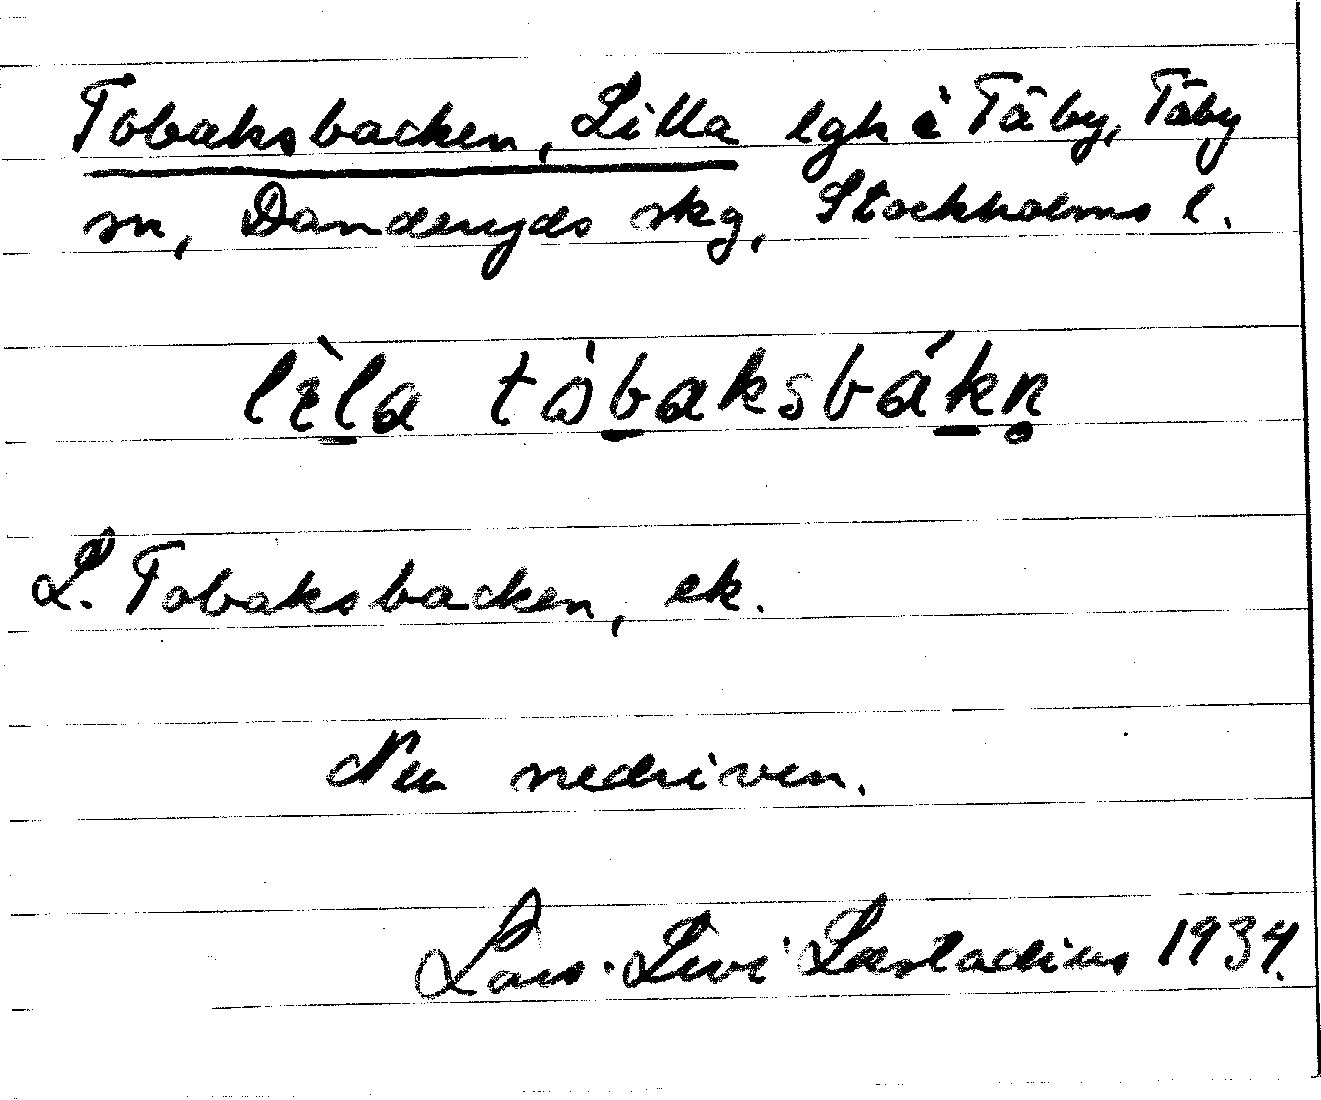 Tobaksbacken, Lilla lgh i Täby, Täby
sn, Danderyds skg, Stockholms l.
lìla tòbaksbákn̥
L. Tobaksbacken, ek.
Nu nedriven.
Lars-Levi Læstadius 1934.